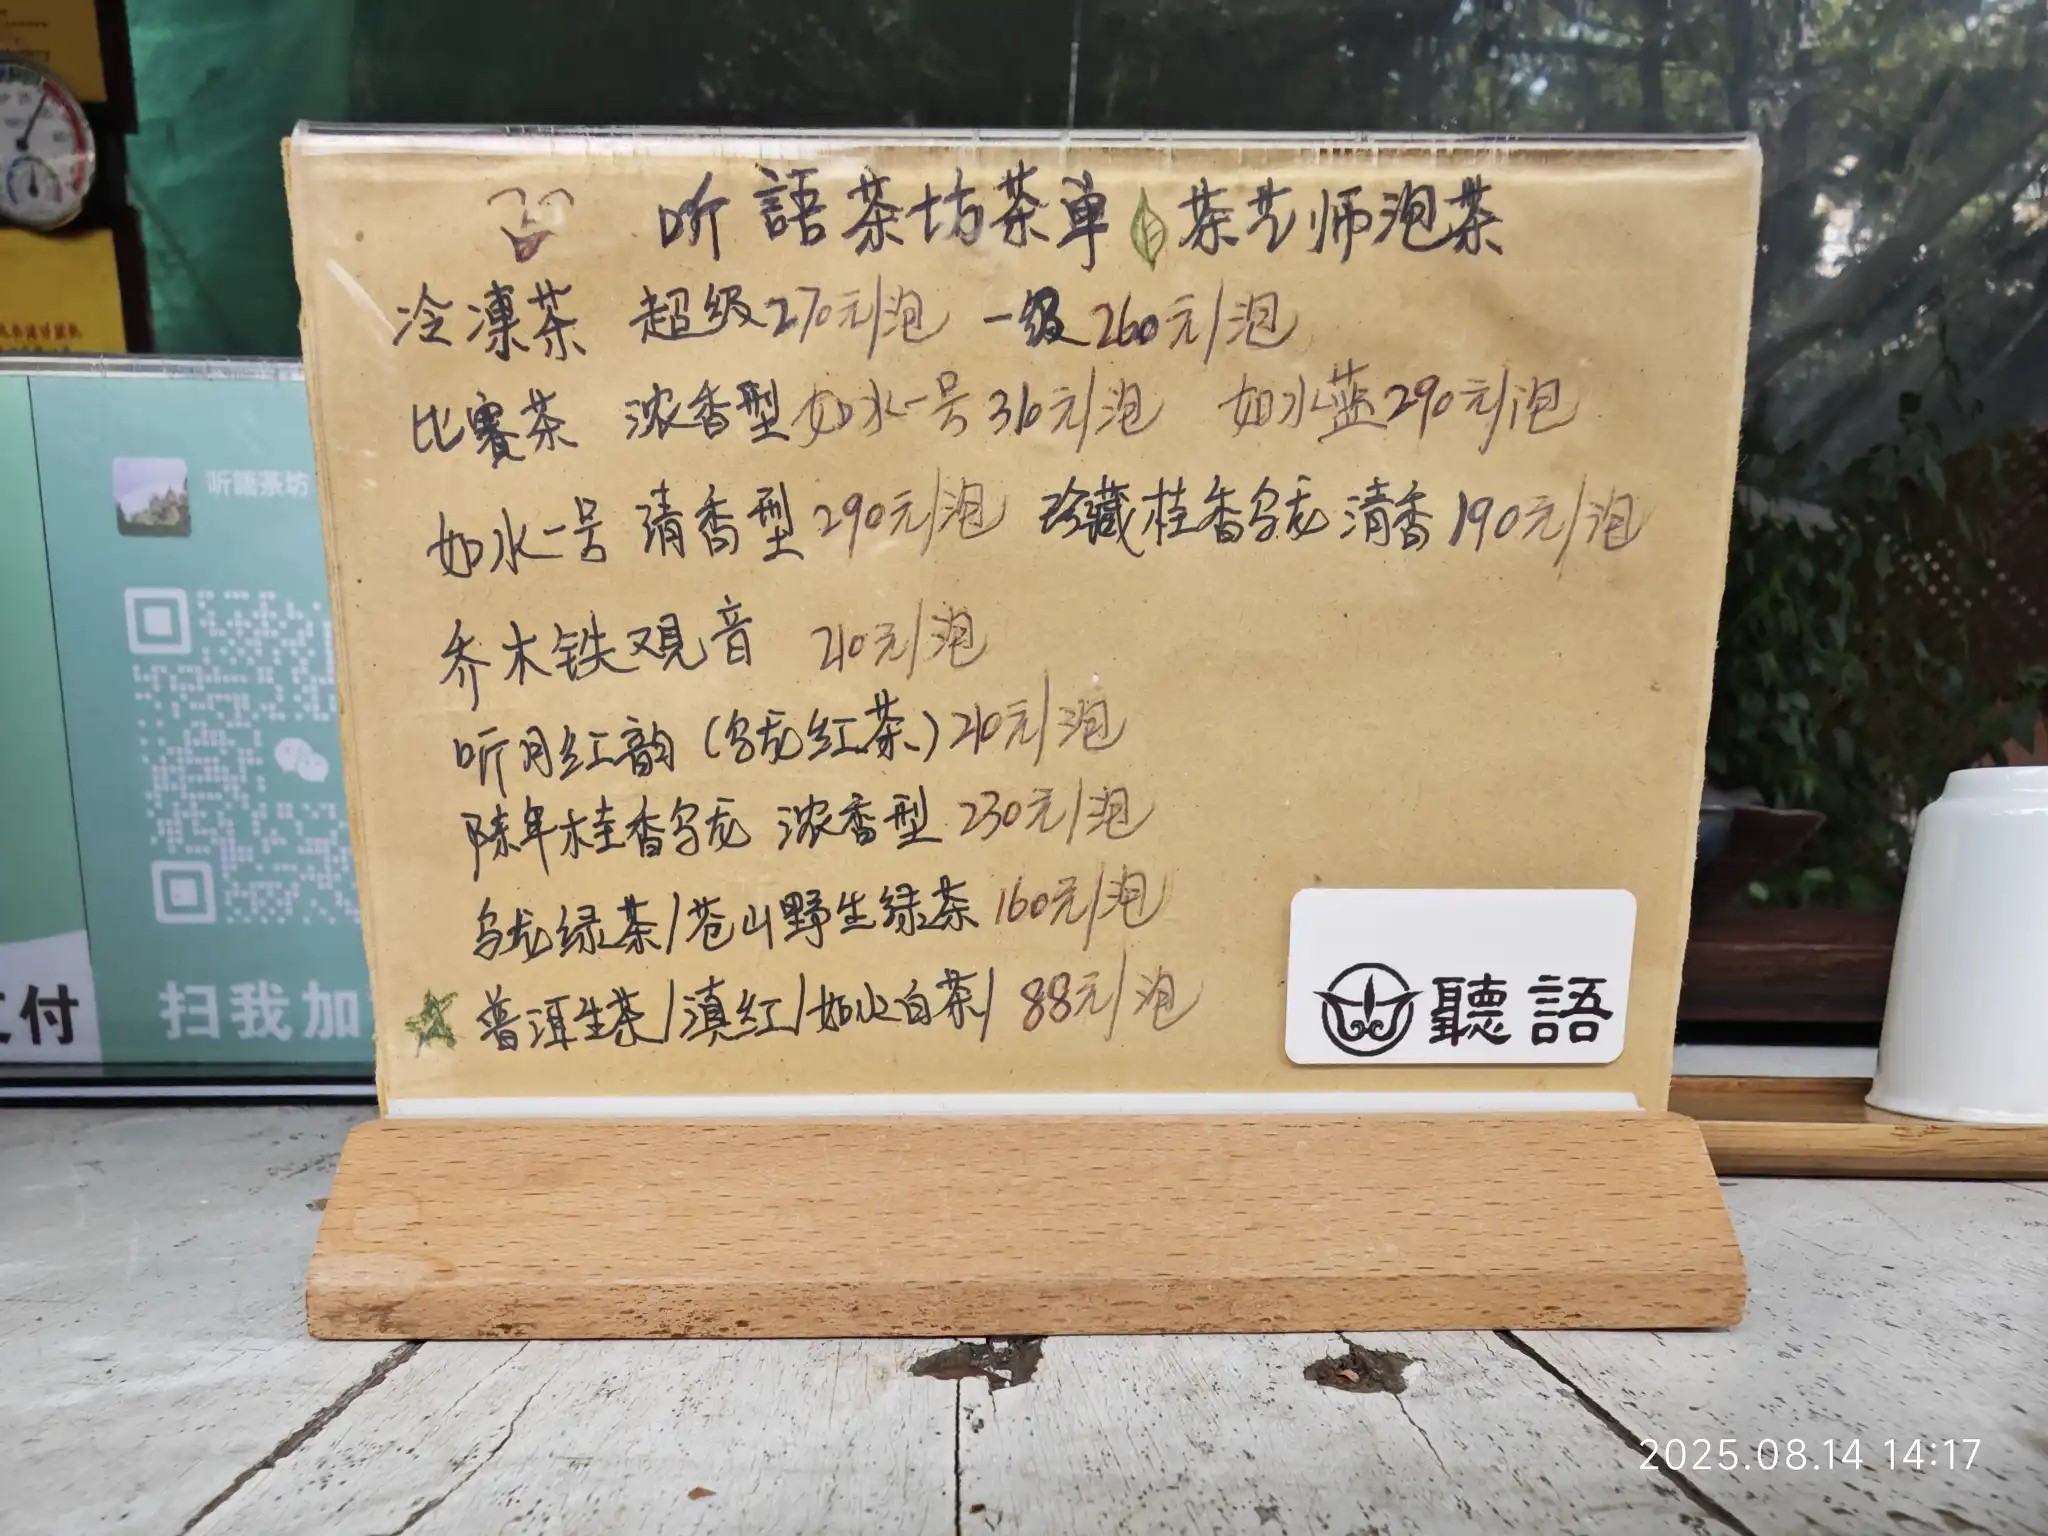 听語茶坊茶单 茶艺师泡茶
冷凛茶 超级270元/泡 一级260元/泡
比赛茶 浓香型如水一号310元/泡 如水蓝290元/泡
如水一号 清香型290元/泡 珍藏桂香乌龙 清香190元/泡
乔木铁观音 210元/泡
听月红韵(乌龙红茶)210元/泡
陈年桂香乌龙 浓香型 230元/泡
乌龙绿茶/苍山野生绿茶 160元/泡
普洱生茶/滇红/如水白茶/ 88元/泡
聽語
听語茶坊
扫我加
付
2025.08.14 14:17